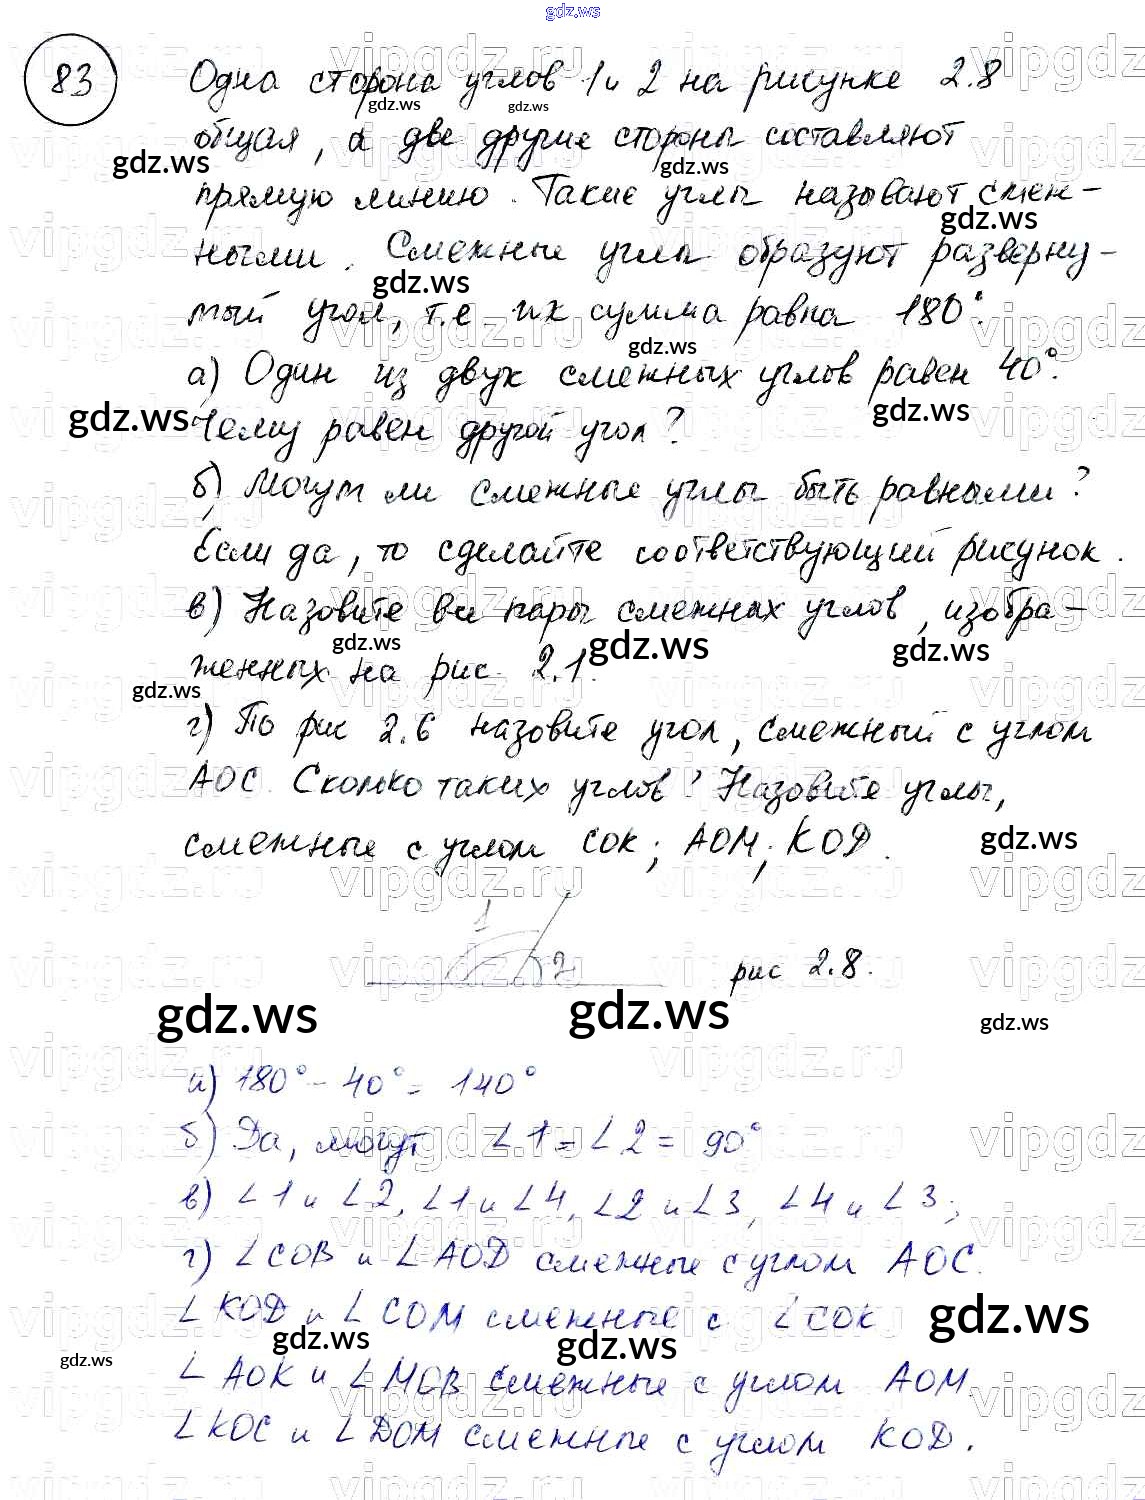 gdz.ws
83
Одна сторона углов 1 и 2 на рисунке 2.8
общая, а две другие стороны составляют
прямую линию. Такие углы называют смеж-
ными. Смежные углы образуют разверну-
тый угол, т.е их сумма равна 180°.
а) Один из двух смежных углов равен 40°.
Чему равен другой угол?
б) Могут ли смежные углы быть равными?
Если да, то сделайте соответствующий рисунок.
в) Назовите все пары смежных углов, изобра-
женных на рис 2.1.
г) По рис 2.6 назовите угол, смежный с углом
АОС. Сколько таких углов? Назовите углы,
смежные с углом СОК; АОМ; КОД.
1
2
рис 2.8.
а) 180° - 40° = 140°
б) Да, могут ∠1 = ∠2 = 90°
в) ∠1 и ∠2, ∠1 и ∠4, ∠2 и ∠3, ∠4 и ∠3;
г) ∠COB и ∠AOD смежные с углом AOC.
∠KOD и ∠COM смежные с ∠COK
∠AOK и ∠MOB смежные с углом AOM.
∠KOC и ∠DOM смежные с углом KOD.
gdz.ws
vipgdz.ru